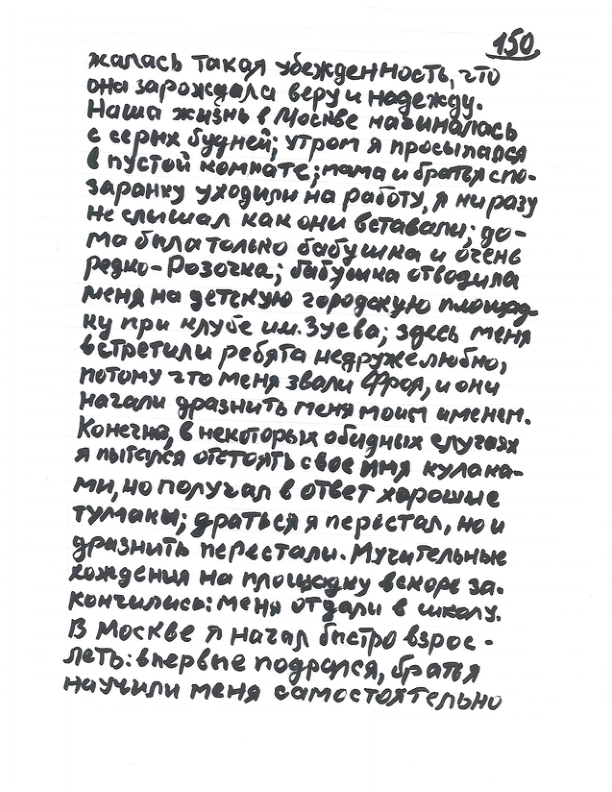 150
жалась такая убежденность, что
она зарождала веру и надежду.
Наша жизнь в Москве начиналась
с серых будней; утром я просыпался
в пустой комнате; мама и братья спо-
заранку уходили на работу, я ни разу
не слышал как они вставали; до-
ма была только бабушка и очень
редко - Розочка; бабушка отводила
меня на детскую городскую площад-
ку при клубе им. Зуева; здесь меня
встретили ребята недружелюбно,
потому что меня звали Фроя, и они
начали дразнить меня моим именем.
Конечно, в некоторых обидных случаях
я пытался отстоять свое имя кулака-
ми, но получал в ответ хорошие
тумаки; драться я перестал, но и
дразнить перестали. Мучительные
хождения на площадку вскоре за-
кончились: меня отдали в школу.
В Москве я начал быстро взрос-
леть: впервые подрался, братья
научили меня самостоятельно